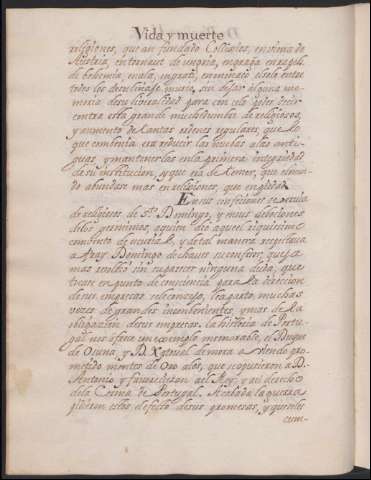 Vida y muerte
religiones, que an fundado Collexios, en viena de
Austria, en tornaut de ungria, en praga en egli
de bohemia, mala, ingrats, en oninato desde entre
todos los de su linaje, murio, sin dejar alguna me-
moria de su liberalidad para con ela poder decir
contra esta grande muchedumbre de religiosos,
y aumento de tantas ordenes regulares, que lo
que combenia era reducir las nuebas alas anti-
guas, y mantenerlas en la primera integridad
de su institucion, y que era de temer, que el mun-
do abundase mas en religiones, que en piedad
En sus confesiones se ocula
de religiosos de Sto. Domingo, y en sus debociones
delos geronimos, a quien dio aquel riquisimo
combento de y de tal manera respetaua
a fray Domingo de chaues su confesor, que ja-
mas resolbio sin su parecer ninguna duda, que
tocase en punto de consciencia para la direccion
de sus empresas este consejo, le aparto muchas
voces de grandes incombenientes, y mas de la
obligazion de sus empresas. la historia de Portu-
gal nos ofrece un exemplo memorable, el Duque
de Osuna, y D. Xptoual de mora a viendo pro-
metido montes de Oro alos, que siguieron a D.
Antonio y fauorecieron a el Rey, y a su derecho
de la Corona de Portugal. Acabada la guerra
pidieron estos el efecto de sus promesas, y que seles
cum-